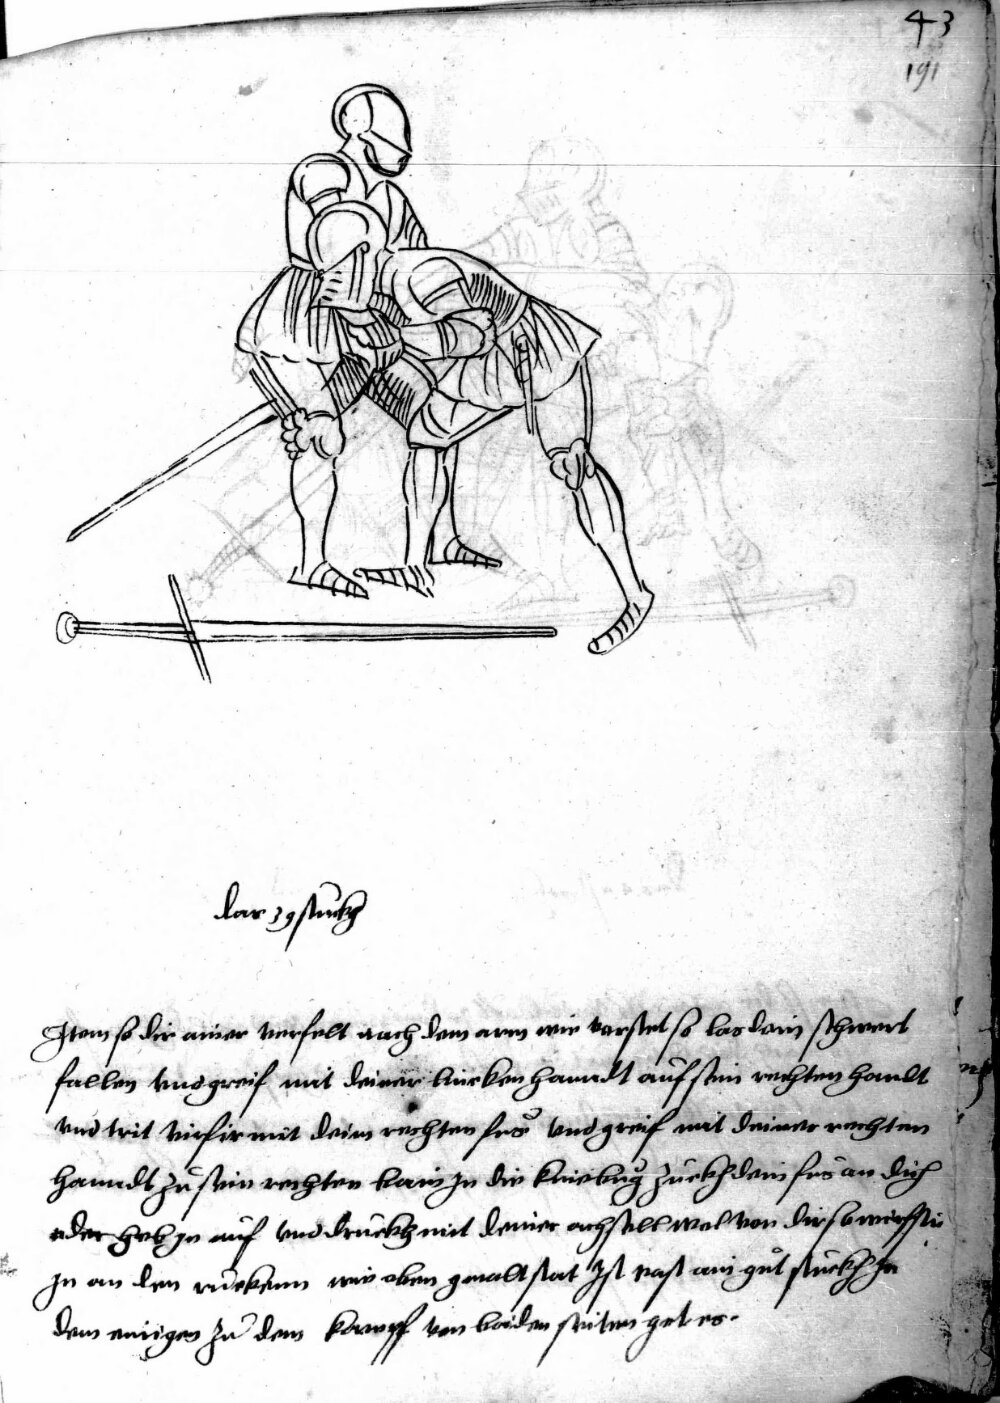 43
191
das 39 stuckh
Item so dir ainer verfelt nach dem arm wie vorstet so las dein schwert
fallen vnd greif mit deiner lincken hanndt auf sein rechten handt
vnd trit virsir mit deim rechten fus vnd greif mit deiner rechten
hanndt zu sein rechten bain In die kniebug zuckh dein fus an dich
oder heb In auf vnd druckh mit deiner achsell wol von dir so wirfstu
In an den ruckenn wie oben gemalt stat Ist vast ain gut stuckh In
dem ainigen zu dem kampff von baiden seitten get es.